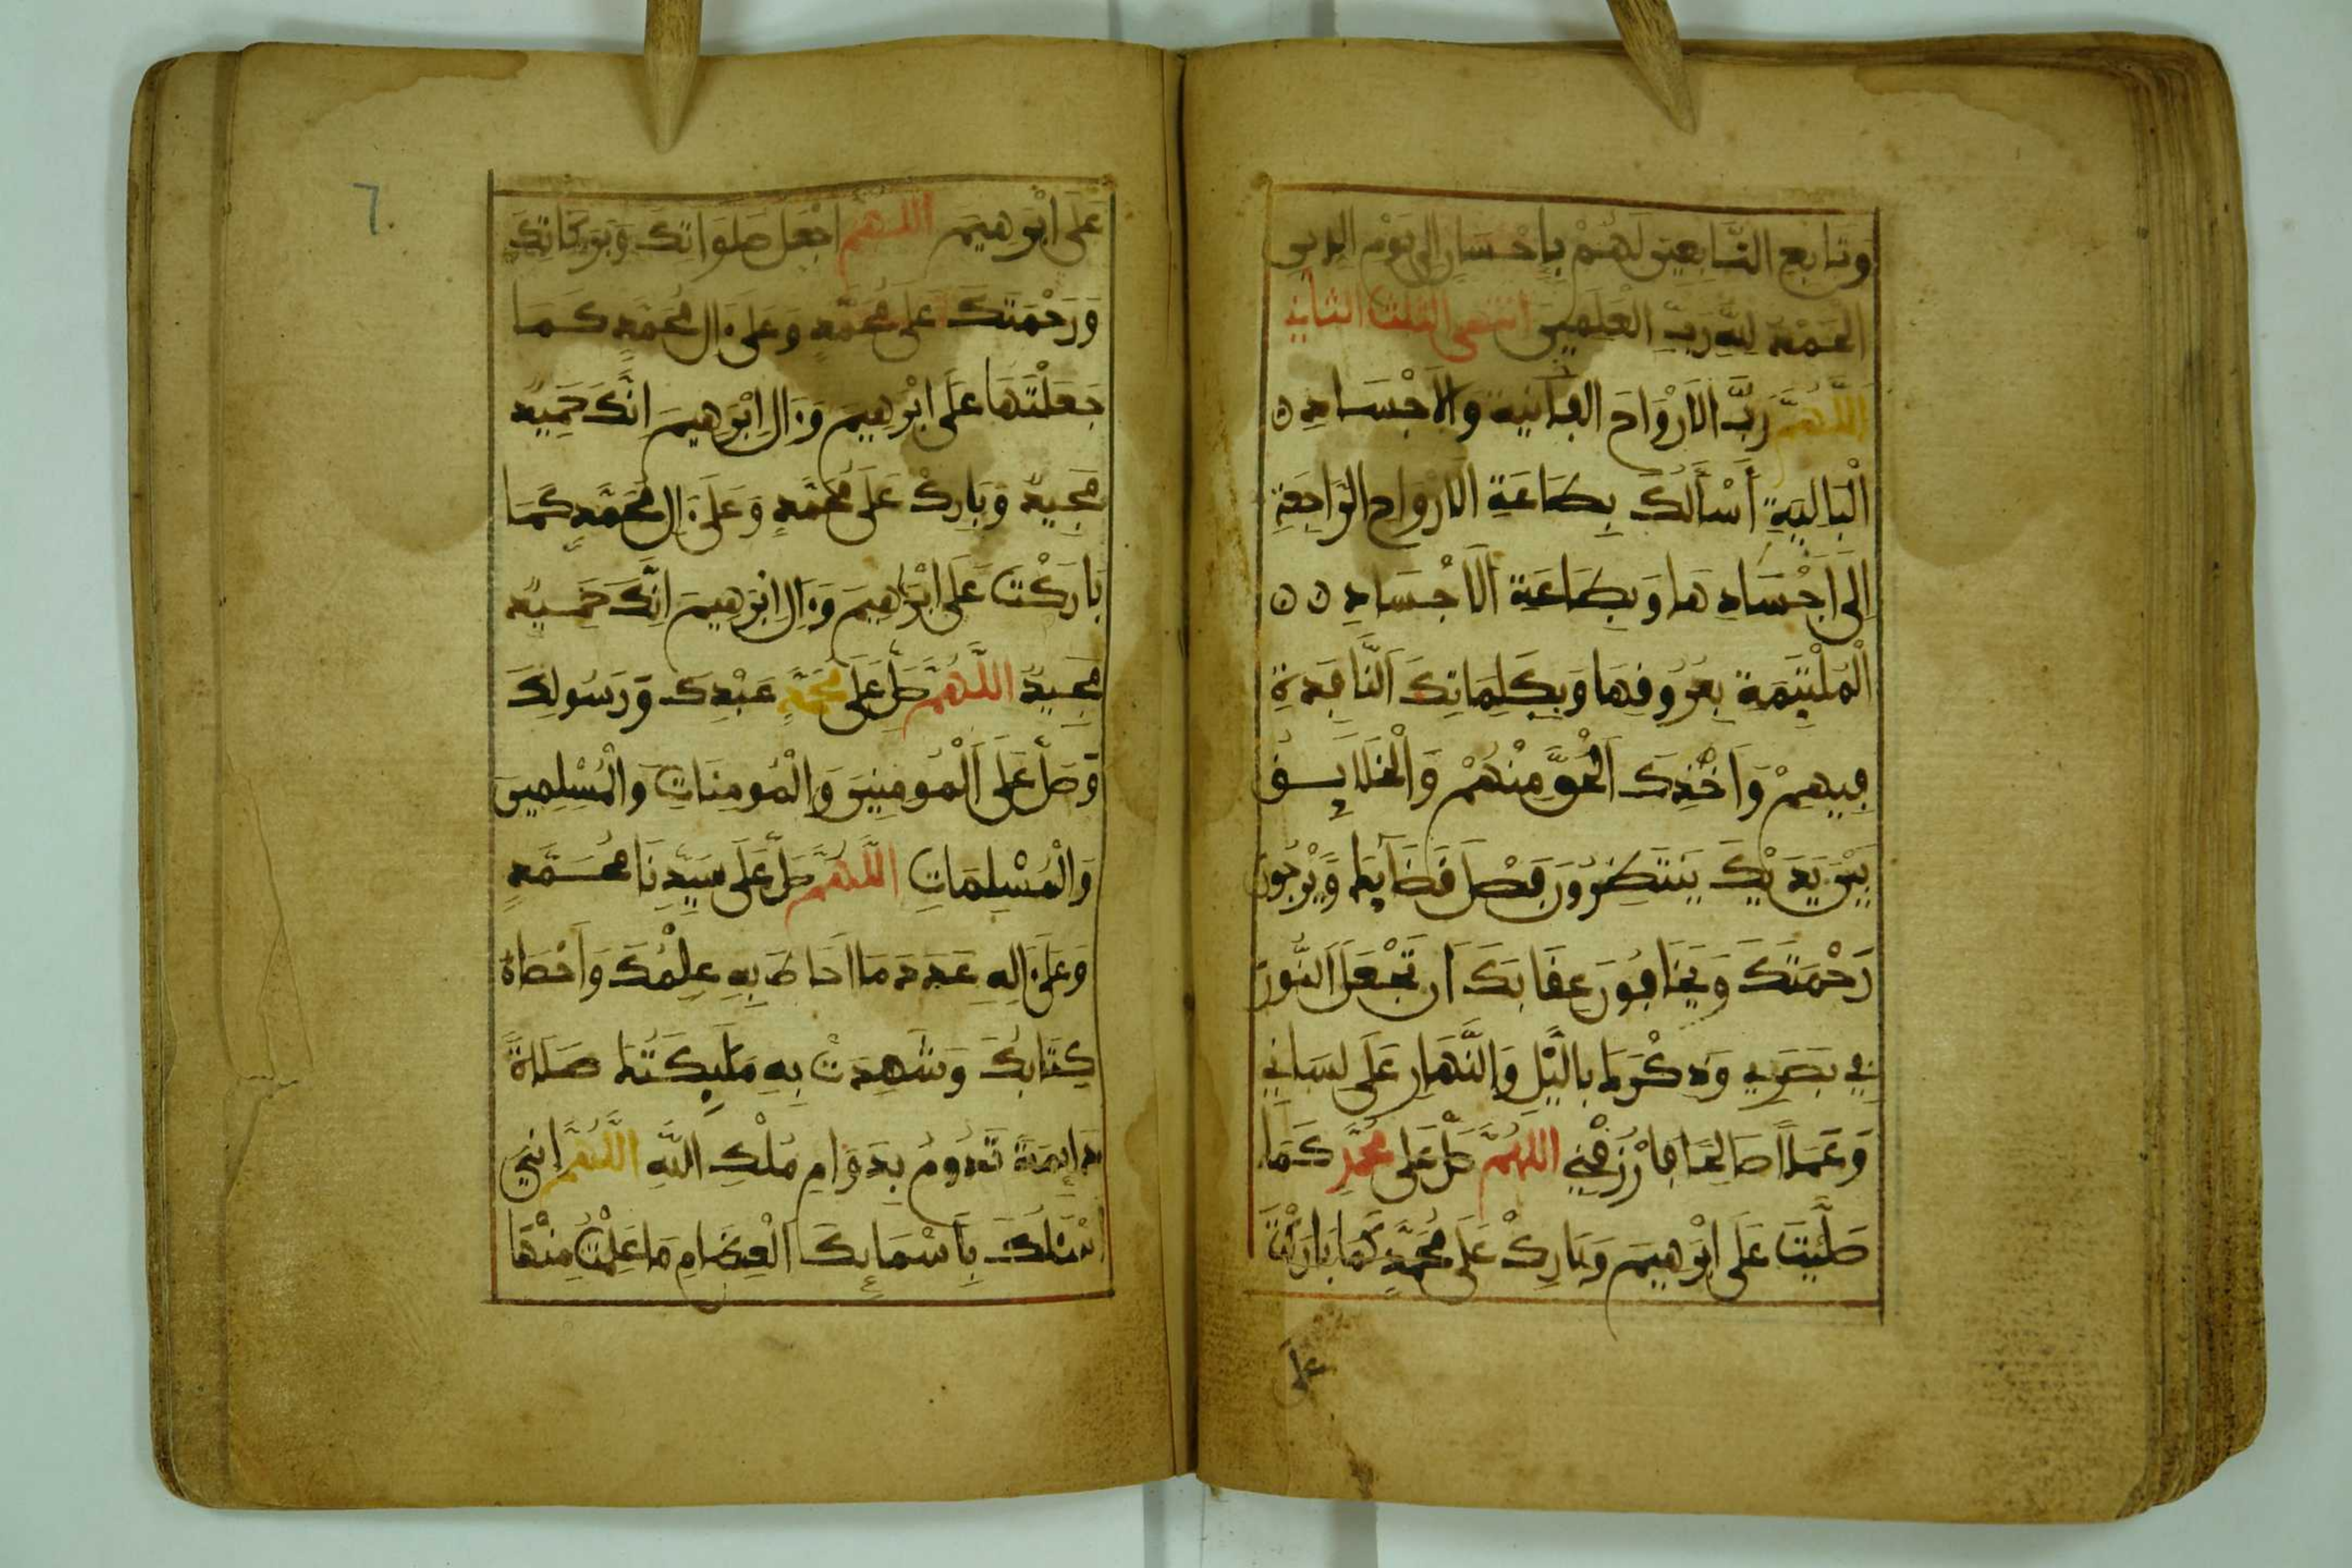 وَتَابِعِ التَّابِعِينَ لَهُمْ بِإِحْسَانٍ إِلَى يَوْمِ الدِّينِ
الْحَمْدُ لِلَّهِ رَبِّ الْعَلَمِينَ انتهى الثلث الثاني
اللَّهُمَّ رَبَّ الَارْوَاحِ الْفَانِيَةِ وَالَاجْسَادِ
الْبَالِيَةِ أَسْأَلُكَ بِطَاعَةِ الَارْوَاحِ الرَّاجِعَةِ
إِلَى اجْسَادِهَا وَبِطَاعَةِ الَاجْسَادِ
الْمُلْتَئِمَةِ بِعُرُوقِهَا وَبِكَلِمَاتِكَ النَّافِذَةِ
فِيهِمْ وَأَخْذِكَ الْحَقَّ مِنْهُمْ وَالْخَلَايِقُ
بَيْنَ يَدَيْكَ يَنْتَظِرُونَ فَصْلَ قَضَايِكَ وَيَرْجُونَ
رَحْمَتَكَ وَيَخَافُونَ عِقَابَكَ أَن تَجْعَلَ النُّورَ
فِي بَصَرِي وَذِكْرَكَ بِالَّيْلِ وَالنَّهَارِ عَلَى لِسَانِي
وَعَمَلًا صَالِحًا فَارْزُقْنِي اللَّهُمَّ صَلِّ عَلَى مُحَمَّدٍ كَمَا
صَلَّيْتَ عَلَى ابْرَهِيمَ وَبَارِكْ عَلَى مُحَمَّدٍ كَمَا بَارَكْتَ
على
6
عَلَى ابْرَهِيمَ اللَّهُمَّ اجْعَلْ صَلَوَاتِكَ وَبَرَكَاتِكَ
وَرَحْمَتَكَ عَلَى مُحَمَّدٍ وَعَلَى ءَالِ مُحَمَّدٍ كَمَا
جَعَلْتَهَا عَلَى ابْرَهِيمَ وَءَالِ إِبْرَهِيمَ إِنَّكَ حَمِيدٌ
مَجِيدٌ وَبَارِكْ عَلَى مُحَمَّدٍ وَعَلَى ءَالِ مُحَمَّدٍ كَمَا
بَارَكْتَ عَلَى ابْرَهِيمَ وَءَالِ ابْرَهِيمَ إِنَّكَ حَمِيدٌ
مَجِيدٌ اللَّهُمَّ صَلِّ عَلَى مُحَمَّدٍ عَبْدِكَ وَرَسُولِكَ
وَصَلِّ عَلَى الْمُومِنِينَ وَالْمُومِنَاتِ وَالْمُسْلِمِينَ
وَالْمُسْلِمَاتِ اللَّهُمَّ صَلِّ عَلَى سَيِّدِنَا مُحَمَّدٍ
وَعَلَى ءَالِهِ عَدَدَ مَا أَحَاطَ بِهِ عِلْمُكَ وَأَحْصَاهُ
كِتَابُكَ وَشَهِدَتْ بِهِ مَلَيِكَتُكَ صَلَاةً
دَايِمَةً تَدُومُ بِدَوَامِ مُلْكِ اللَّهِ اللَّهُمَّ إِنِّي
أَسْئَلُكَ بِأَسْمَايِكَ الْعِظَامِ مَا عَلِمْتُ مِنْهَا